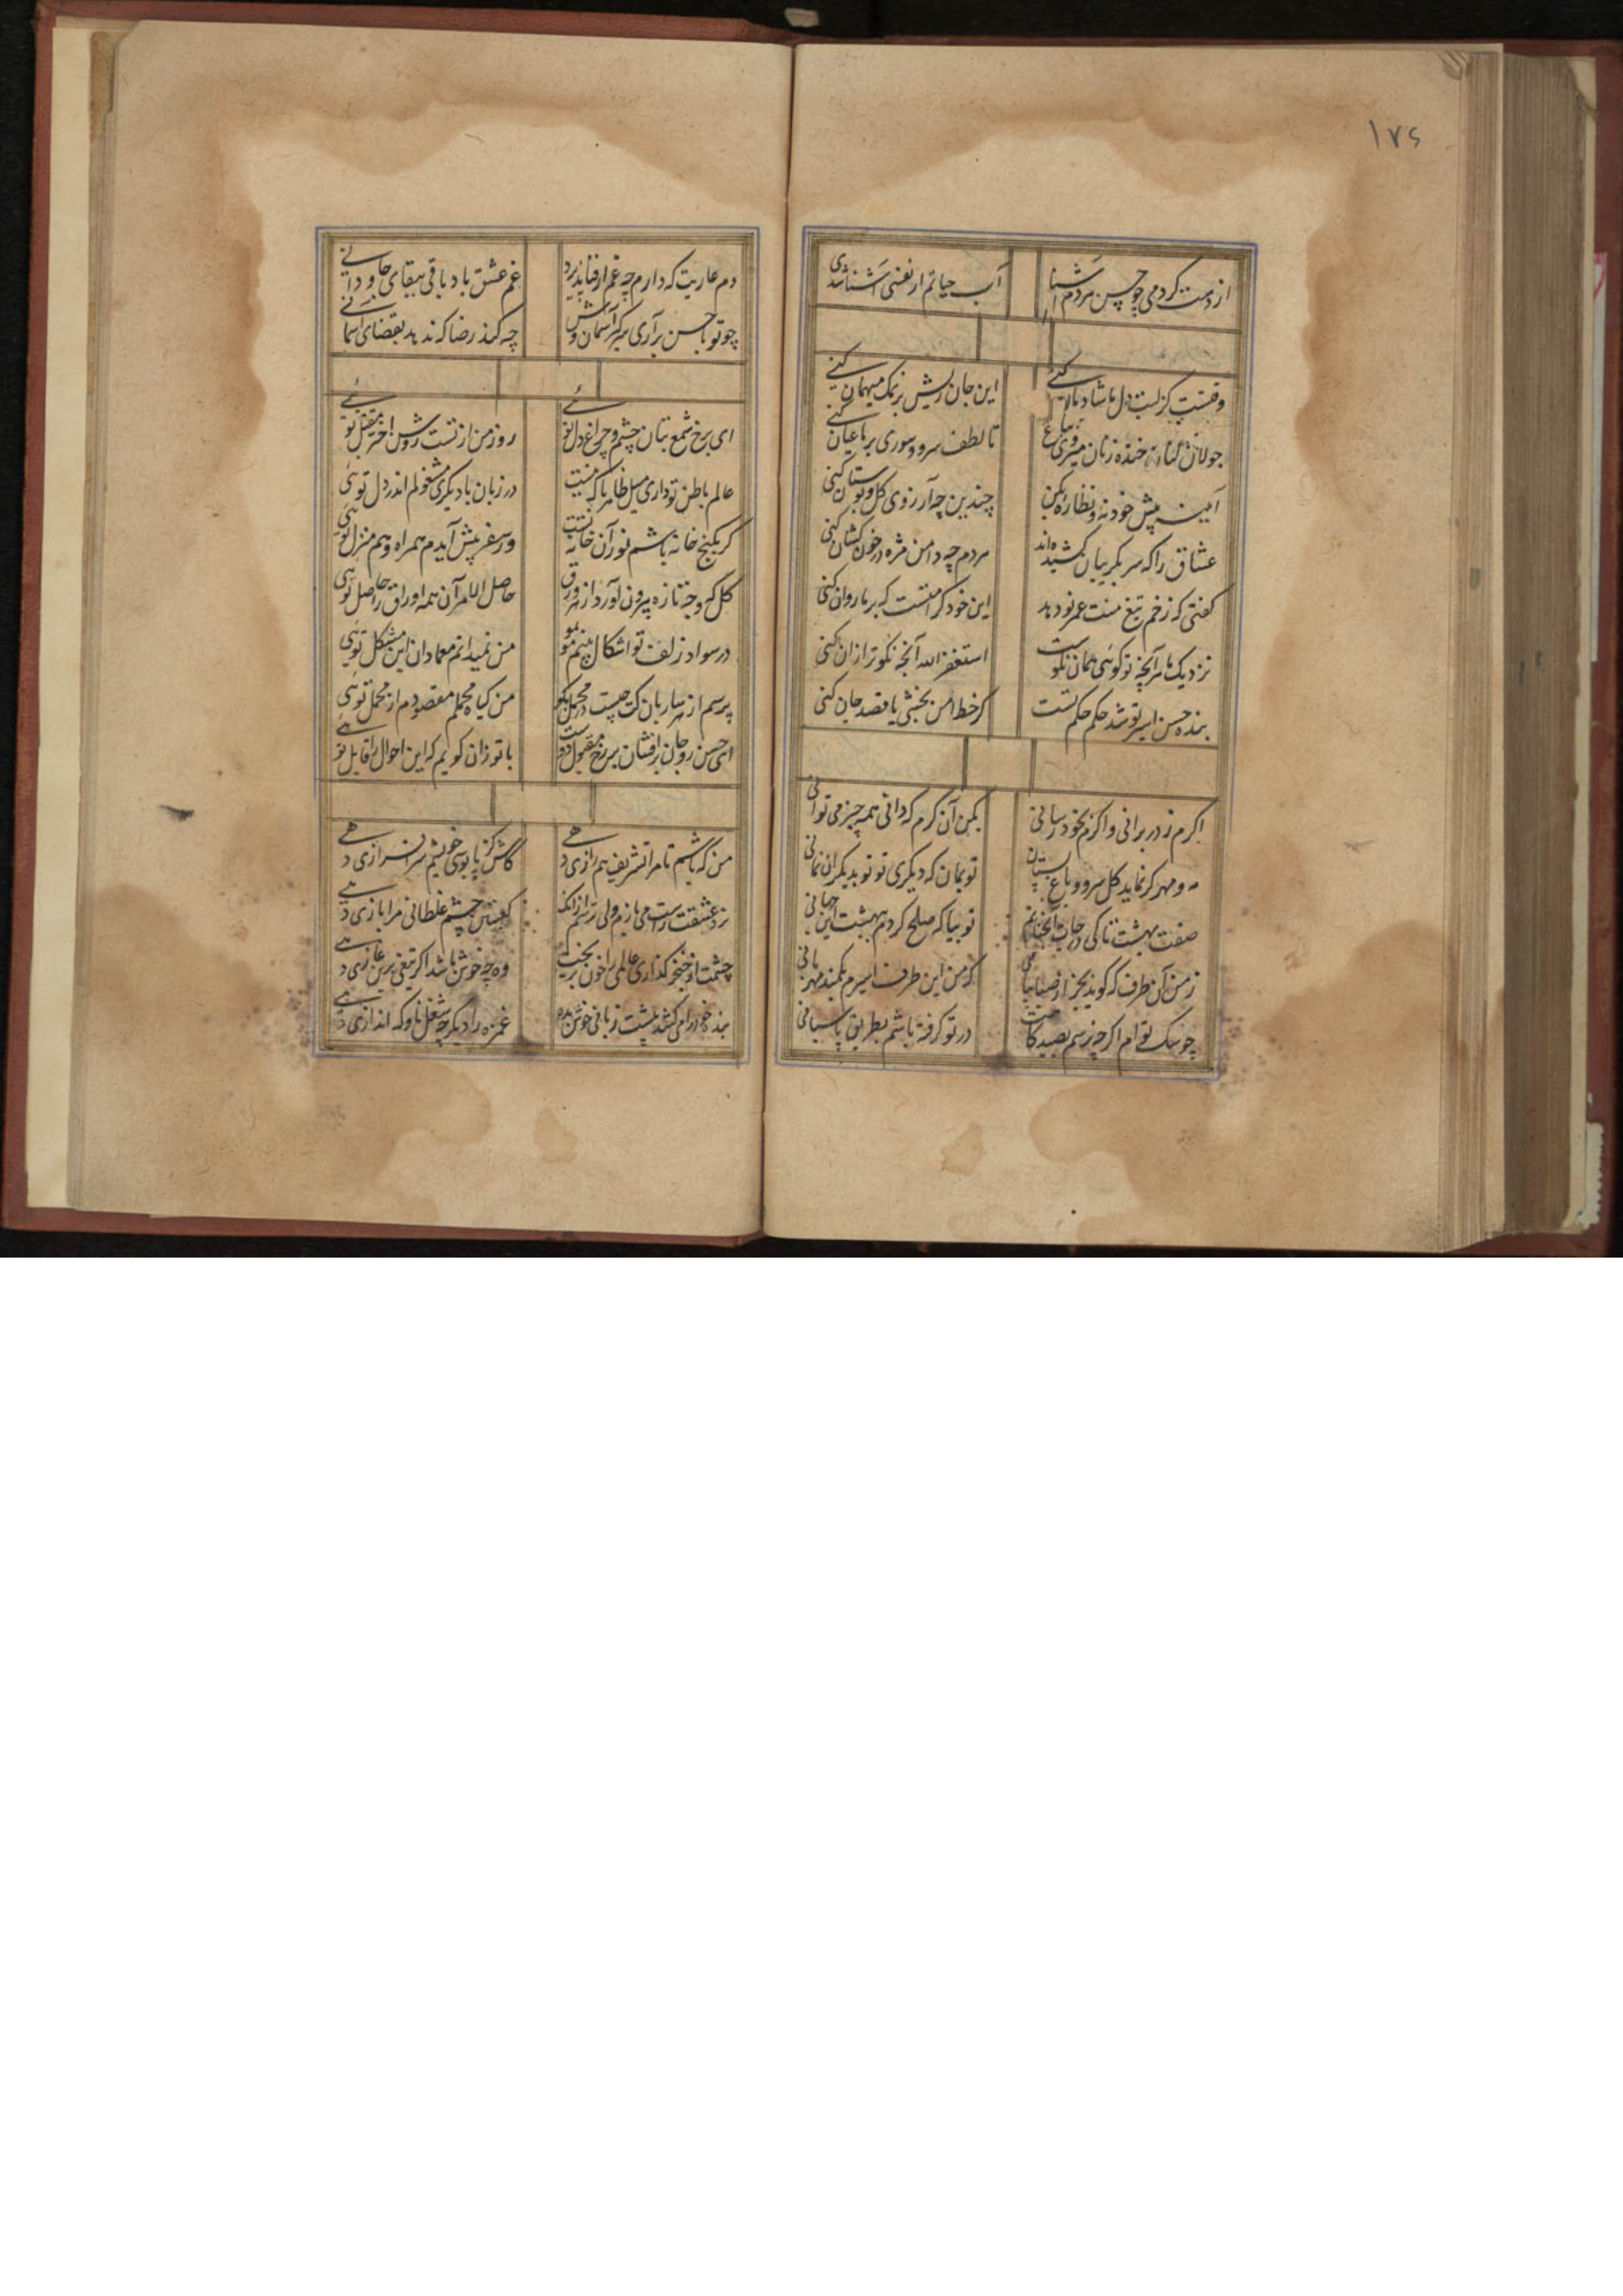 ۱۷۶
از دست کردمی چو حسن مردم آشنا آب حیاتم ار نفسی آشنا شدی
وقتست کز لبت دل ما شادمان کنی این جان ریش بر نمک میهمان کنی
جولان خنده زنان میروی بباغ تا لطف سرو و سوری بر ما عیان کنی
آیینه پیش خود نه و نظاره بکن چندین چه آرزوی گل و بوستان کنی
عشاق را که سر بگریبان کشیده‌اند مردم چه دامن مژه در خون کشان کنی
گفتی که زخم تیغ منت عمر نو دهد این خود کرامتست که بر ما روان کنی
نزدیک ما هر آنچه تو گوئی همان نکوست استغفر الله آنچه نکوتر ازان کنی
بنده حسن اسیر تو شد حکم حکم تست گر خط امن بخشی یا قصد جان کنی
اگرم ز در برانی و اگرم بخود رسانی بکن آن کرم که دانی همه چیز می توانی
مه و مهر گر نماید گل سرو و باغ بستان تو بمان که دیگری تو تو بدیگران نمانی
صفت بهشت تا کی در حجاب تو بیا که صلح کردم ببهشت این جهانی
ز من آن طرف که گوید بجز از صبا پیامی که من این طرف اسیرم بکمند مهربانی
چو سگ تو ام اگر چه نرسم بصید گاهت در تو گرفته باشم بطریق پاسبانی
دم عاریت که دارم چه غم ار فنا پذیرد غم عشق باد باقی ببقای جاودانی
چو تو با حسن برآری سر آسمان وش چه کند رضا که ندهد بقضای آسمانی
ای برخ شمع بتان چشم و چراغ دل توئی روز من از تست روشن اختر مقبل توئی
عالم باطن تو داری میل ظاهر با که نیست در زبان با دیگری مشغولم اندر دل توئی
گر بکنج خانه باشم نور آن خانه تست ور سفر پیش آیدم همراه و هم منزل توئی
گل که وجه تازه بیرون آورد از هر ورق حاصل الامر آن همه اوراق را حاصل توئی
در سواد زلف تو اشکال بینم مو بمو من نمیدانم معما دان این مشکل توئی
پرسم از هر ساربان کت چیست در محمل بگو من کیاه محملم مقصودم از محمل توئی
ای حسن رو جان برافشان بر رخ مقبول دوست با تو زان گویم که این احوال را قابل توئی
من که باشم تا مرا تشریف هم رازی دهی کاش کز پابوسی خویشم سرافرازی دهی
نرد عشقت راست می بازم ولی ترسم ازانک کعبتین چشم غلطانی مرا بازی دهی
چشمت از خنجر گذاری عالمی را خون بریخت وه چه خوش باشد اگر تیغی برین غازی دهی
بنده خود را می کشد پیشت زبانی خوش بده غمزه را دیگر چه شغل ناوک اندازی دهی